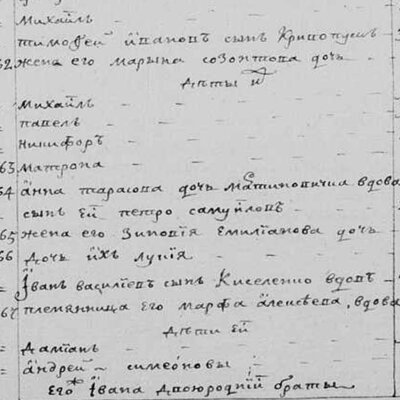 Михаилъ
тимофей Ивановъ сынъ Кривопусть
62 жена его марына созонтова дочь
дѣты
Михаилъ
павелъ
никифоръ
63 матрона
64 анна тарасова дочь вдова
сынъ ей петро самуйловъ
65 жена его Зиновія емиліанова дочь
66 дочь ихъ лукія
Іванъ василіевъ сынъ Киселенко вдовъ
племянница его марфа алексѣева, вдова
дѣти ей
Даміанъ
андрей симеоновы
Его Івана двоюродній браты